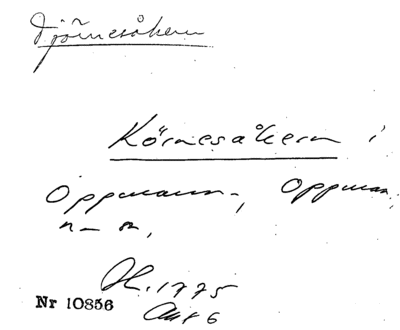 Djörnesåkern
Körnesåkern i
Oppmanna, Oppman-
n- sn,
H. 1775
Akt 6
Nr 10856